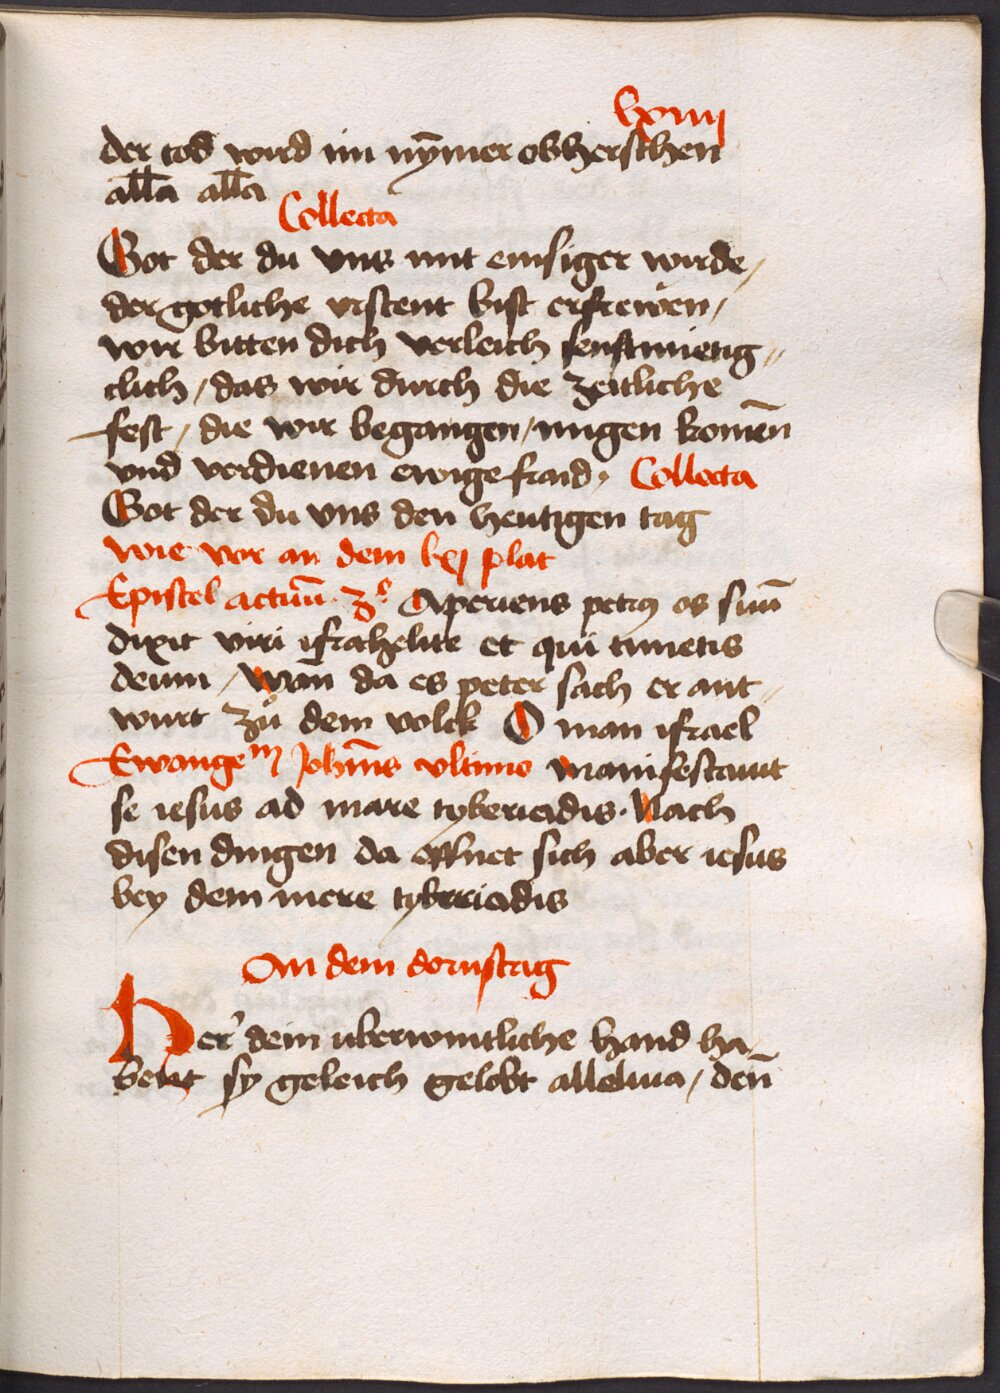 lxiiij
der tod wird im nÿmer obherschen
all̄a all̄a
Collecta
Got der du vns mit einsiger wirde /
der gotliche vrstent bist erfrewen /
wir bitten dich verleich senftmietig //
clich / das wir durch die zeitliche
fest / die wir begangen / mugen komēn
vnd verdienen ewige fraid / Collecta
Got der du vns den heutigen tag
wie vor an dem lxj plat
Epistel actuū · 3ᵒ Aperiens petrꝰ os suū
dixit viri israhelite et qui timetis
deum / Wān da es peter sach er ant //
wurt zů dem volck O man israel
Ewangeᵐ Joh̄nis vltimo manifestauit
se iesus ad mare tyberiadis · Nach
disen dingen da offnet sich aber iesus
bey dem mere tyberiadis
An dem dornstag
Her' dein uberwintliche hand ha //
bent sy geleich gelobt alleluia / deñ